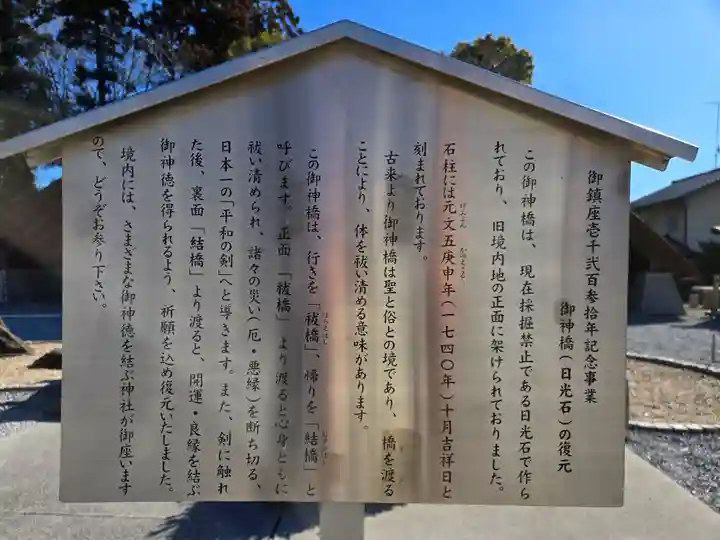 御鎮座壱千弐百参拾年記念事業
御神橋(日光石)の復元
この御神橋は、現在採掘禁止である日光石で作ら
れており、旧境内地の正面に架けられておりました。
石柱には元文五庚申年(一七四〇年)十月吉祥日と
刻まれております。
古来より御神橋は聖と俗との境であり、橋を渡る
ことにより、体を祓い清める意味があります。
この御神橋は、行きを「祓橋」、帰りを「結橋」と
呼びます。正面「祓橋」より渡ると心身ともに
祓い清められ、諸々の災い(厄・悪縁)を断ち切る、
日本一の「平和の剣」へと導きます。また、剣に触れ
た後、裏面「結橋」より渡ると、開運・良縁を結ぶ
御神徳を得られるよう、祈願を込め復元いたしました。
境内には、さまざまな御神徳を結ぶ神社が御座います
ので、どうぞお参り下さい。